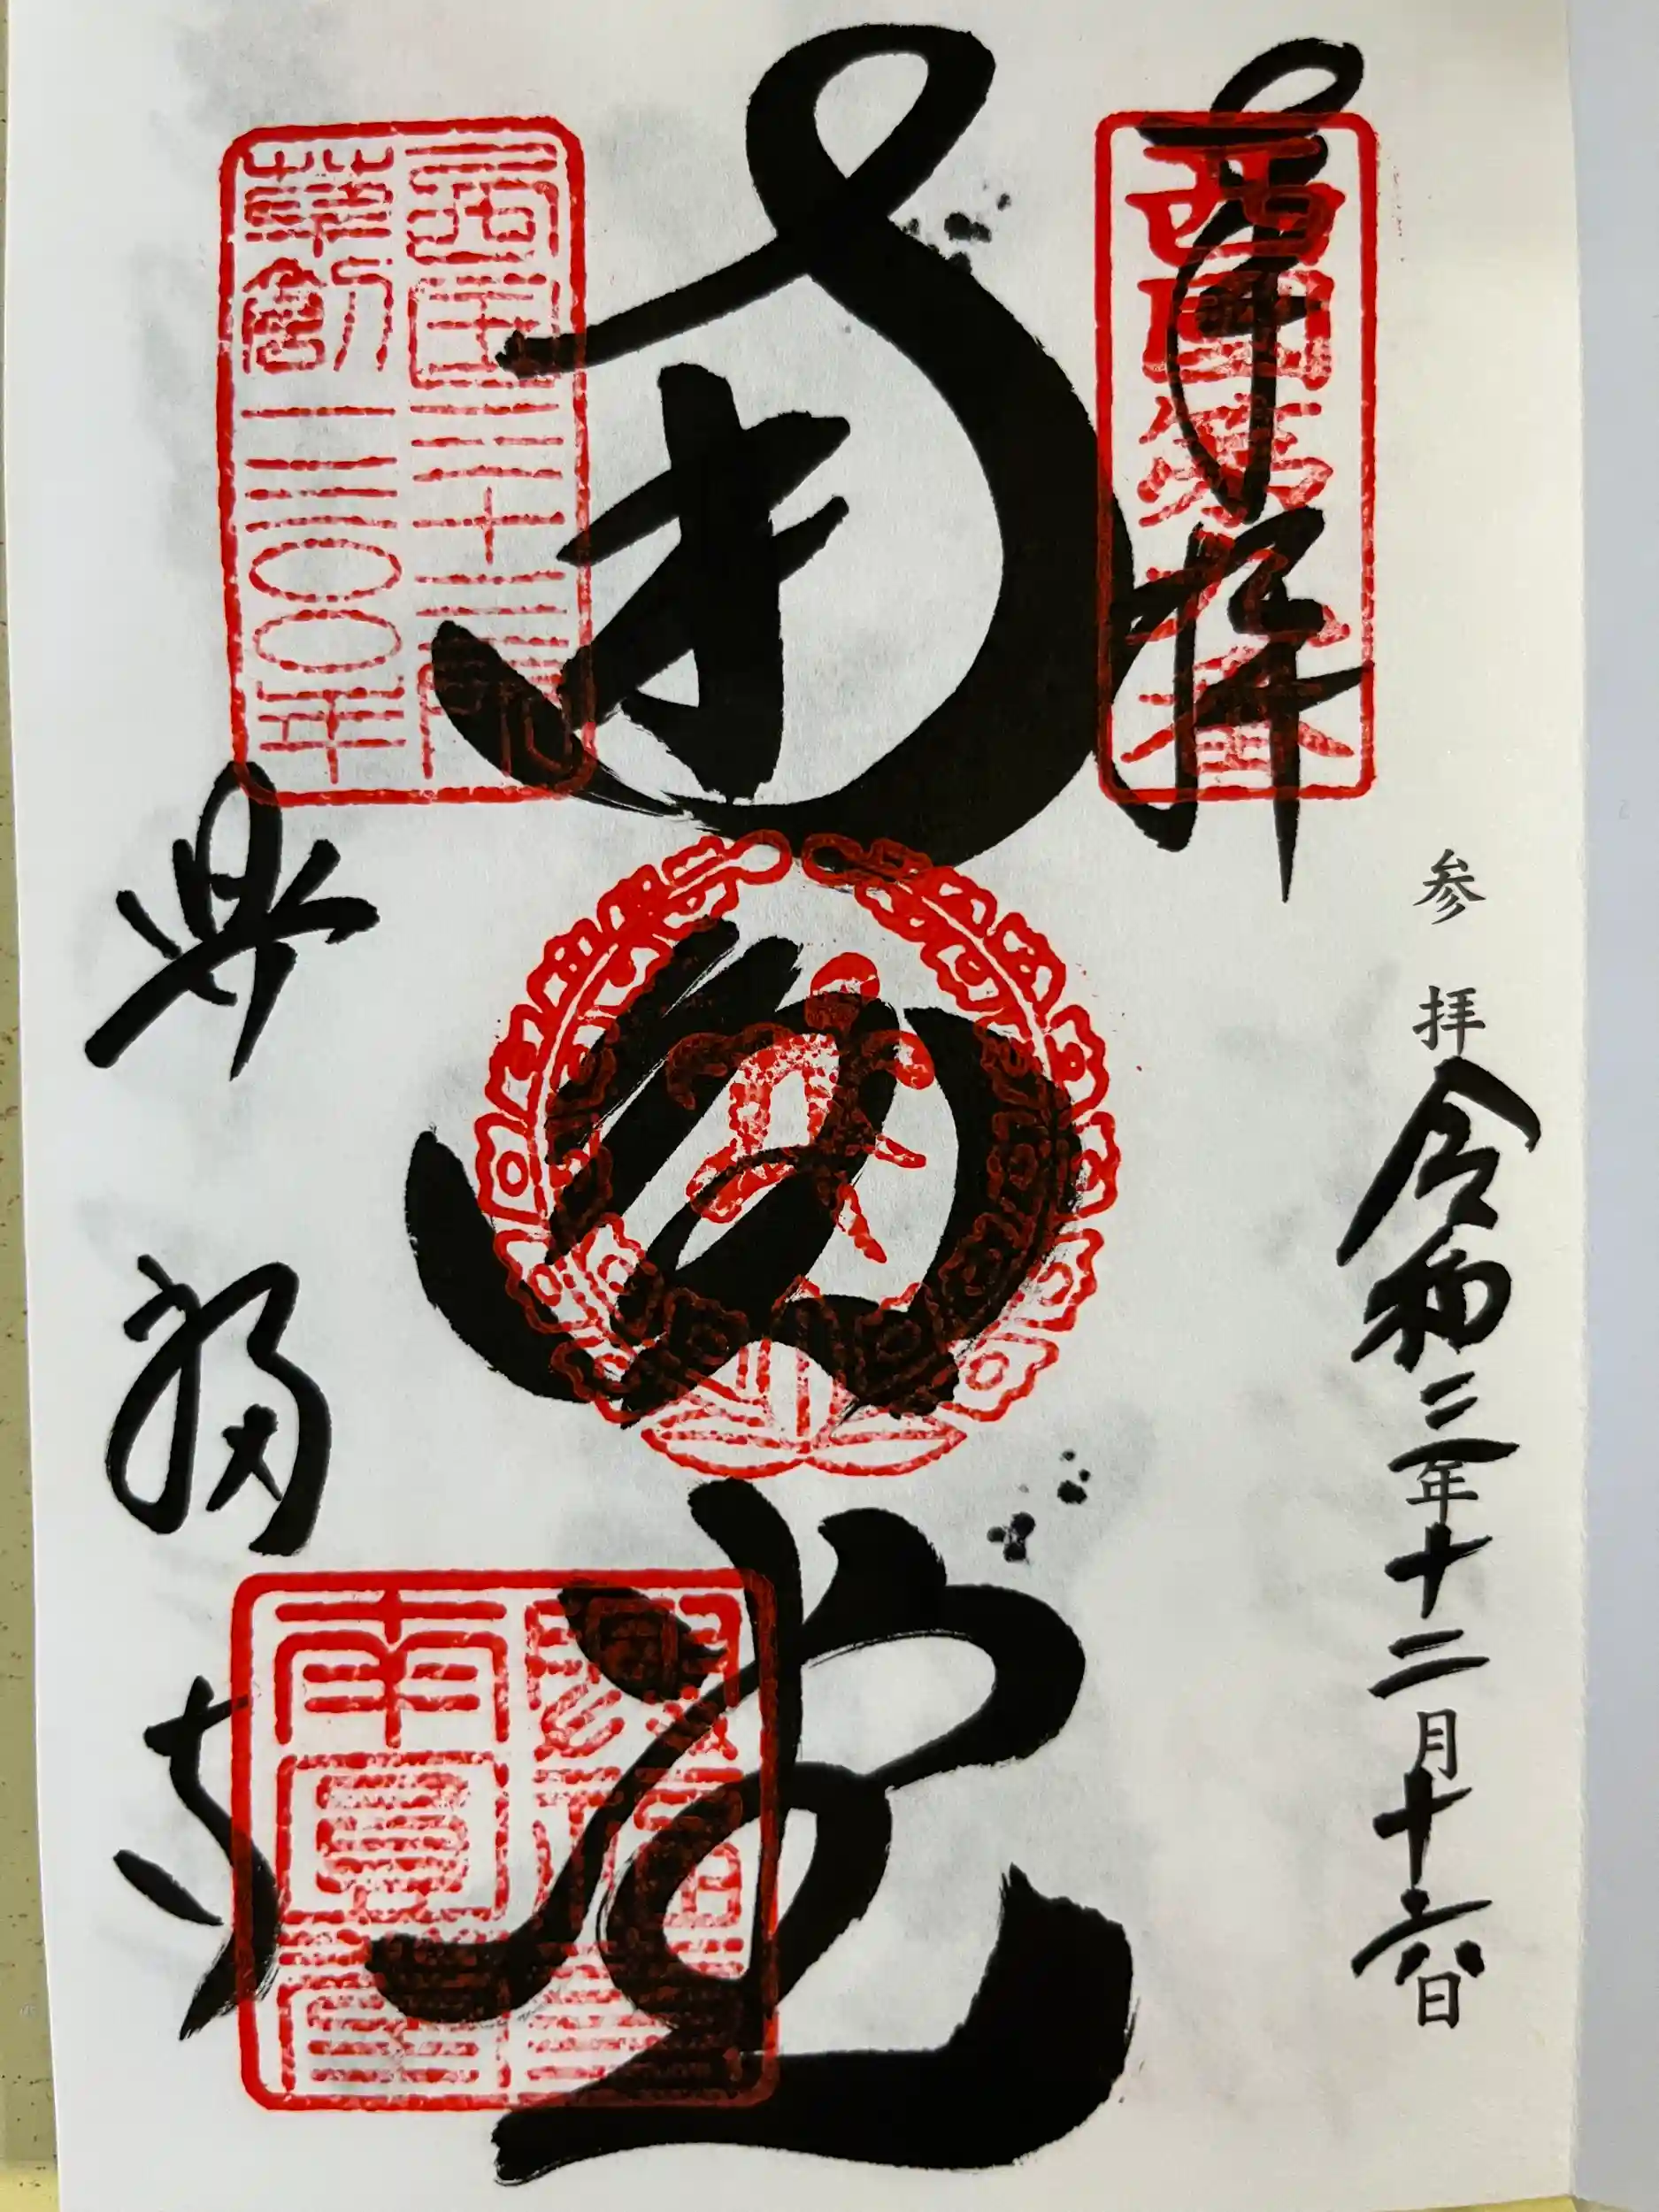 奉拝
西国第九番
参拝 令和三年十二月十六日
南円堂
西国三十三所
草創一三〇〇年
興福寺
南圓堂